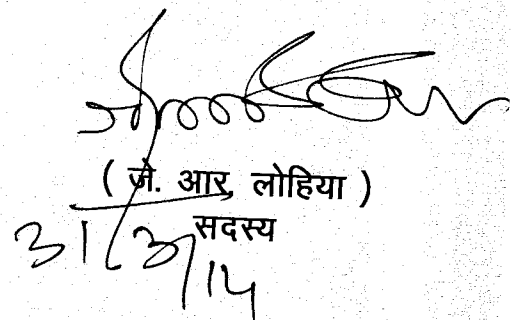 ( जे. आर. लोहिया )
सदस्य
31/3/14